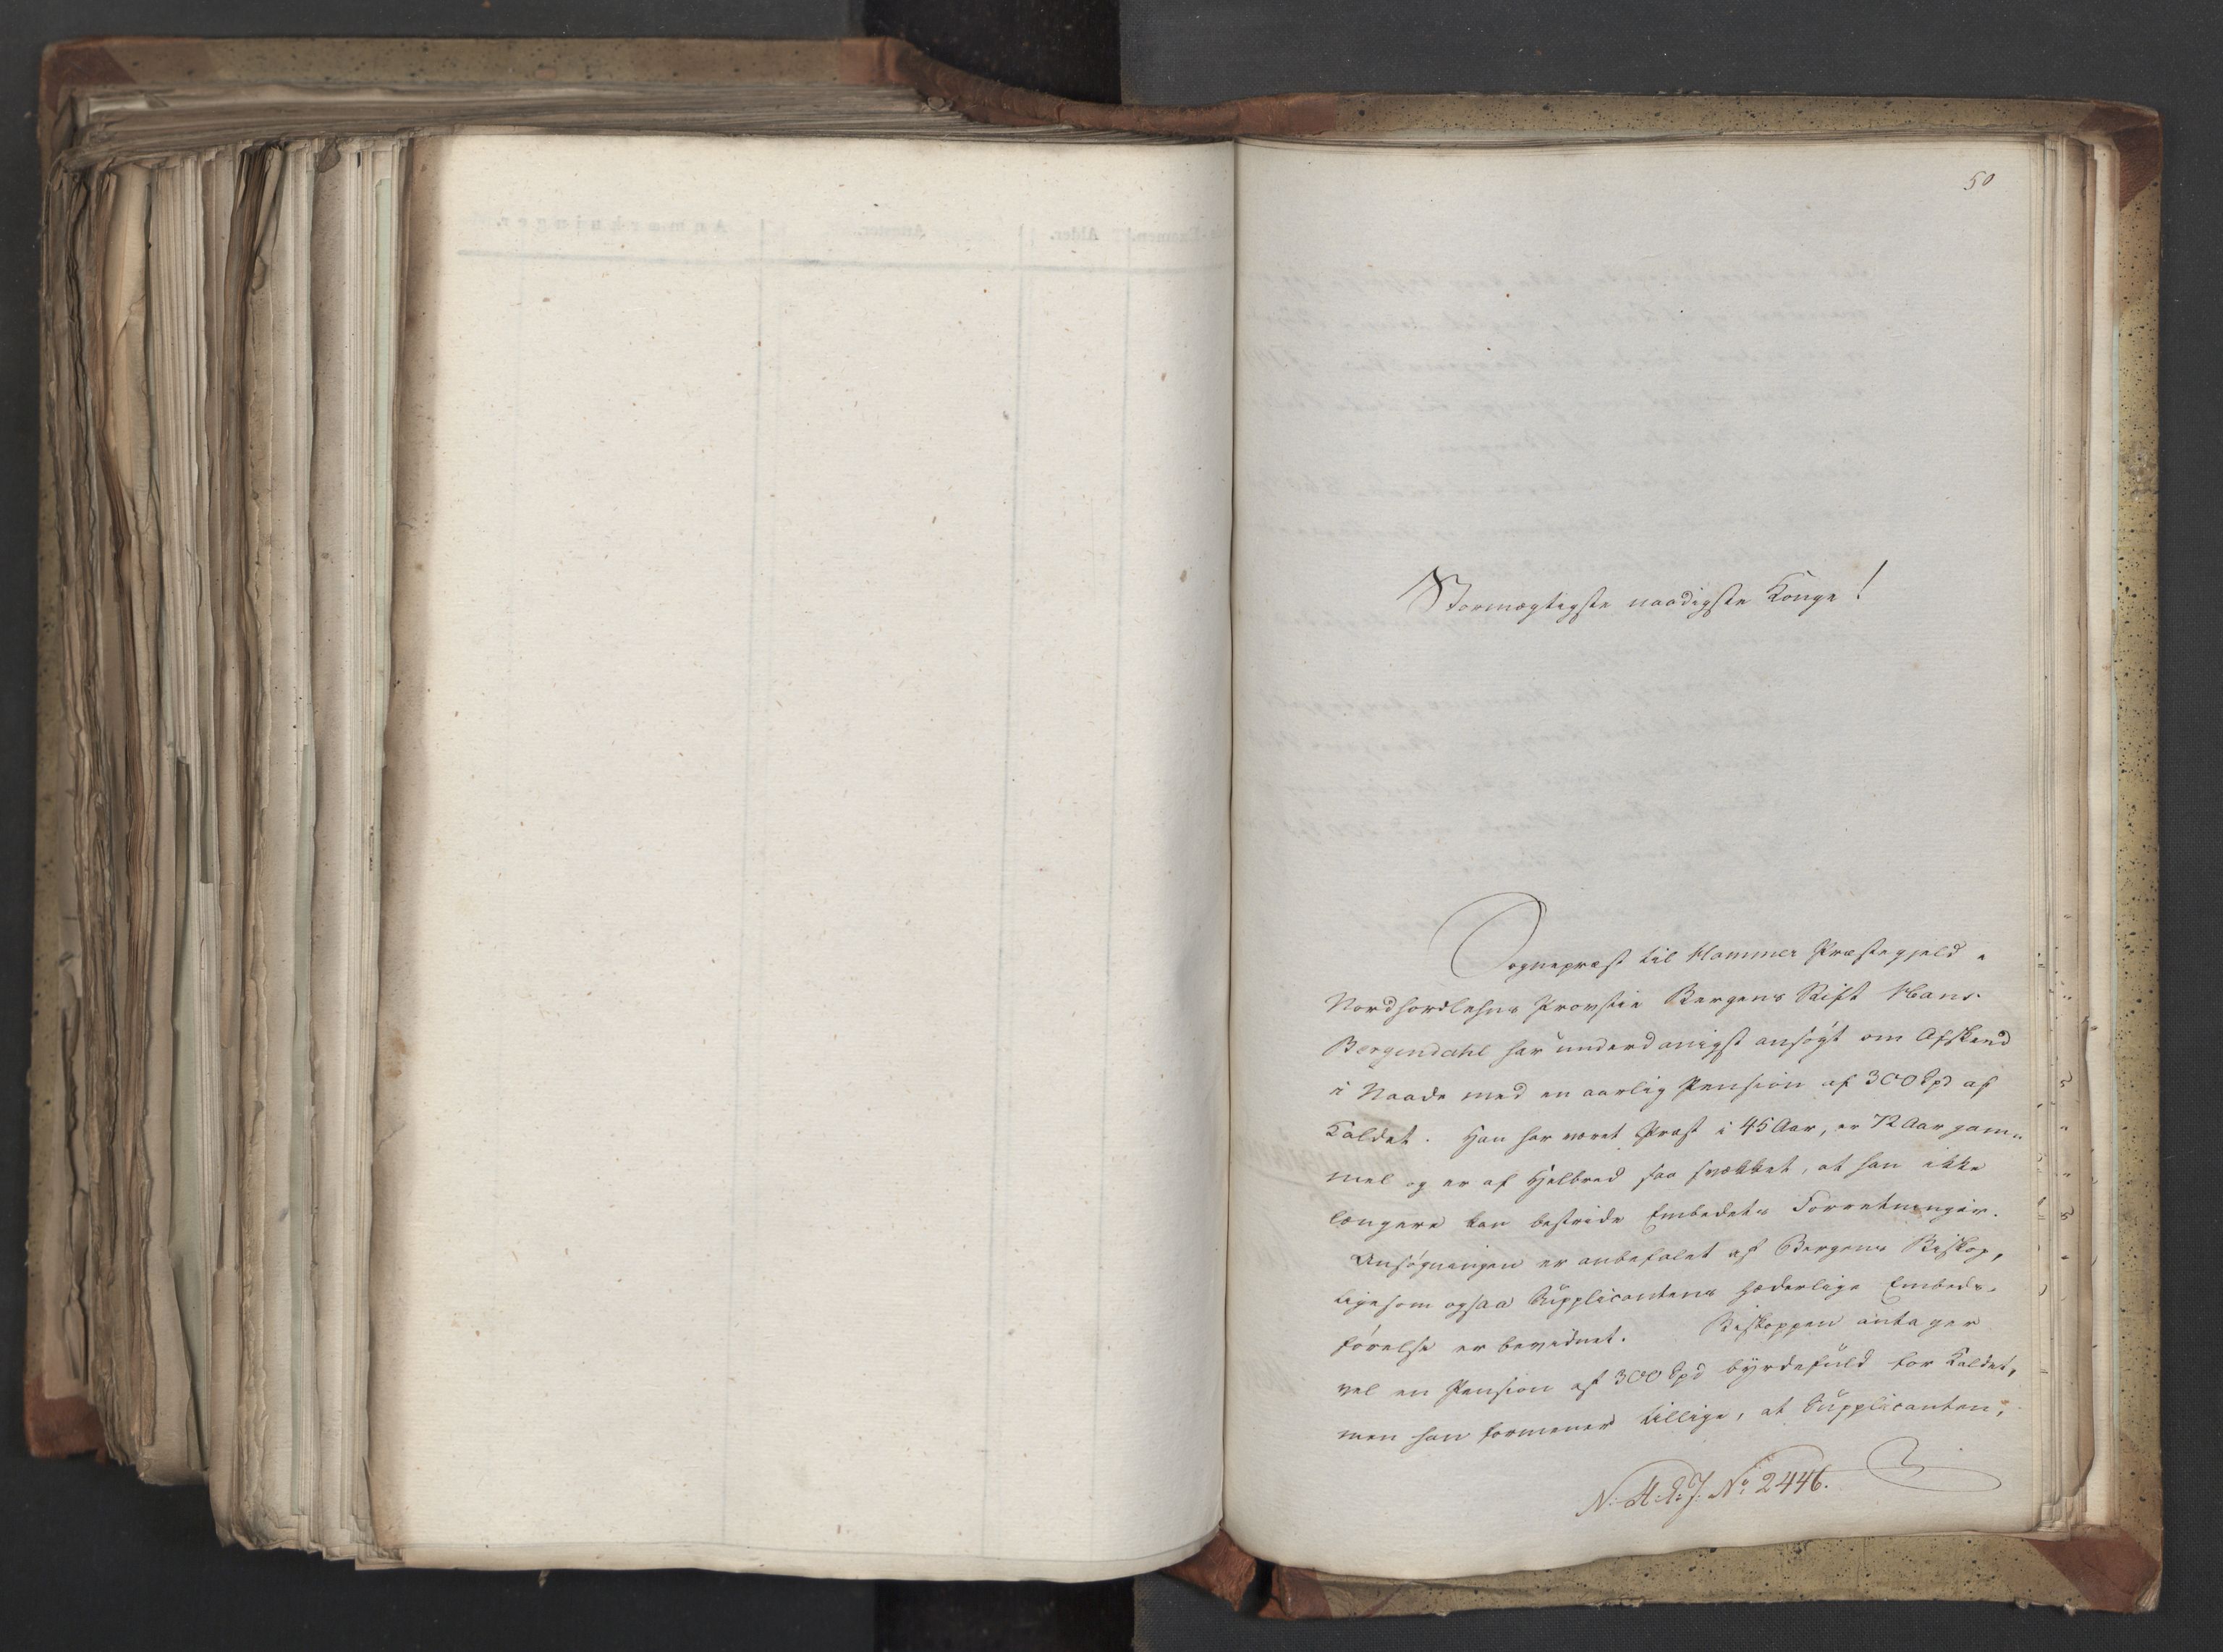 50
Stormægtigste naadigste Konge!
Sognepræst til Hammer Præstegjeld i
Nordhordlehns Provstie Bergens Stift Hans
Bergendahl har underdanigst ansøgt om Afskeed
i Naade med en aarlig Pension af 300 Spd af
Kaldet. Han har været Præst i 45 Aar, er 72 Aar gam-
mel og er af Helbred saa svækket, at han ikke
længere kan bestride Embedets Forretninger.
Ansøgningen er anbefalet af Bergens Biskop,
ligesom ogsaa Supplicantens hæderlige Embeds-
førelse er bevidnet. Biskoppen antager
vel en Pension af 300 Spd byrdefuld for Kaldet,
men han formener tillige, at Supplicanten,
No 2446.
Anmærkninger.
Attester.
Alder.
Examen.